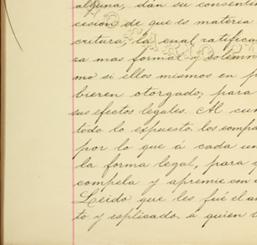 alguna, dan su consenti
cesión de que es materia
critura, la cual ratifica
ca mas formal y solemn
mo si ellos mismos en p
bieren otorgado, para
sus efectos legales. Al cum
todo lo expuesto, los compa
por lo que á cada un
la forma legal, para q
compela y apremie con
Leido que les fué el a
to y esplicado, á quien